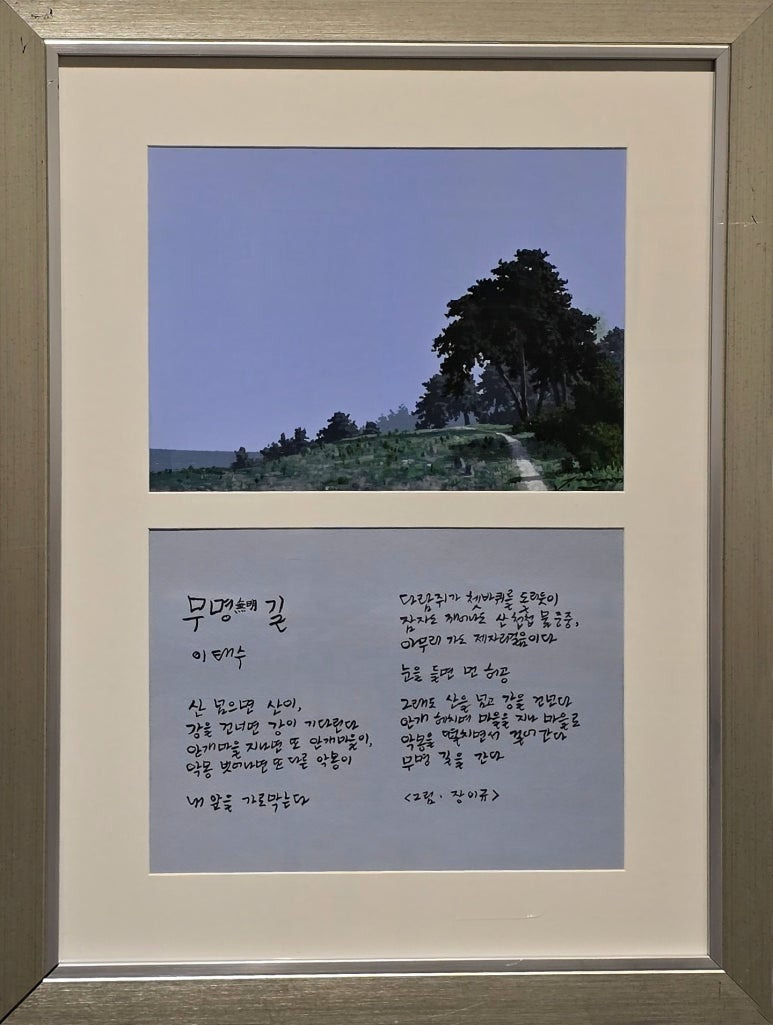 무명無明 길
이태수
산 넘으면 산이,
강을 건너면 강이 기다린다
안개마을 지나면 또 안개마을이,
악몽 벗어나면 또 다른 악몽이
내 앞을 가로막는다
다람쥐가 쳇바퀴를 돌듯이
잠자도 깨어나도 산 첩첩 물 중중,
아무리 가도 제자리걸음이다
눈을 들면 먼 허공
그래도 산을 넘고 강을 건넌다
안개 헤치며 마을을 지나 마을로
악몽을 떨치면서 걸어간다
무명 길을 간다
<그림 · 장이규>